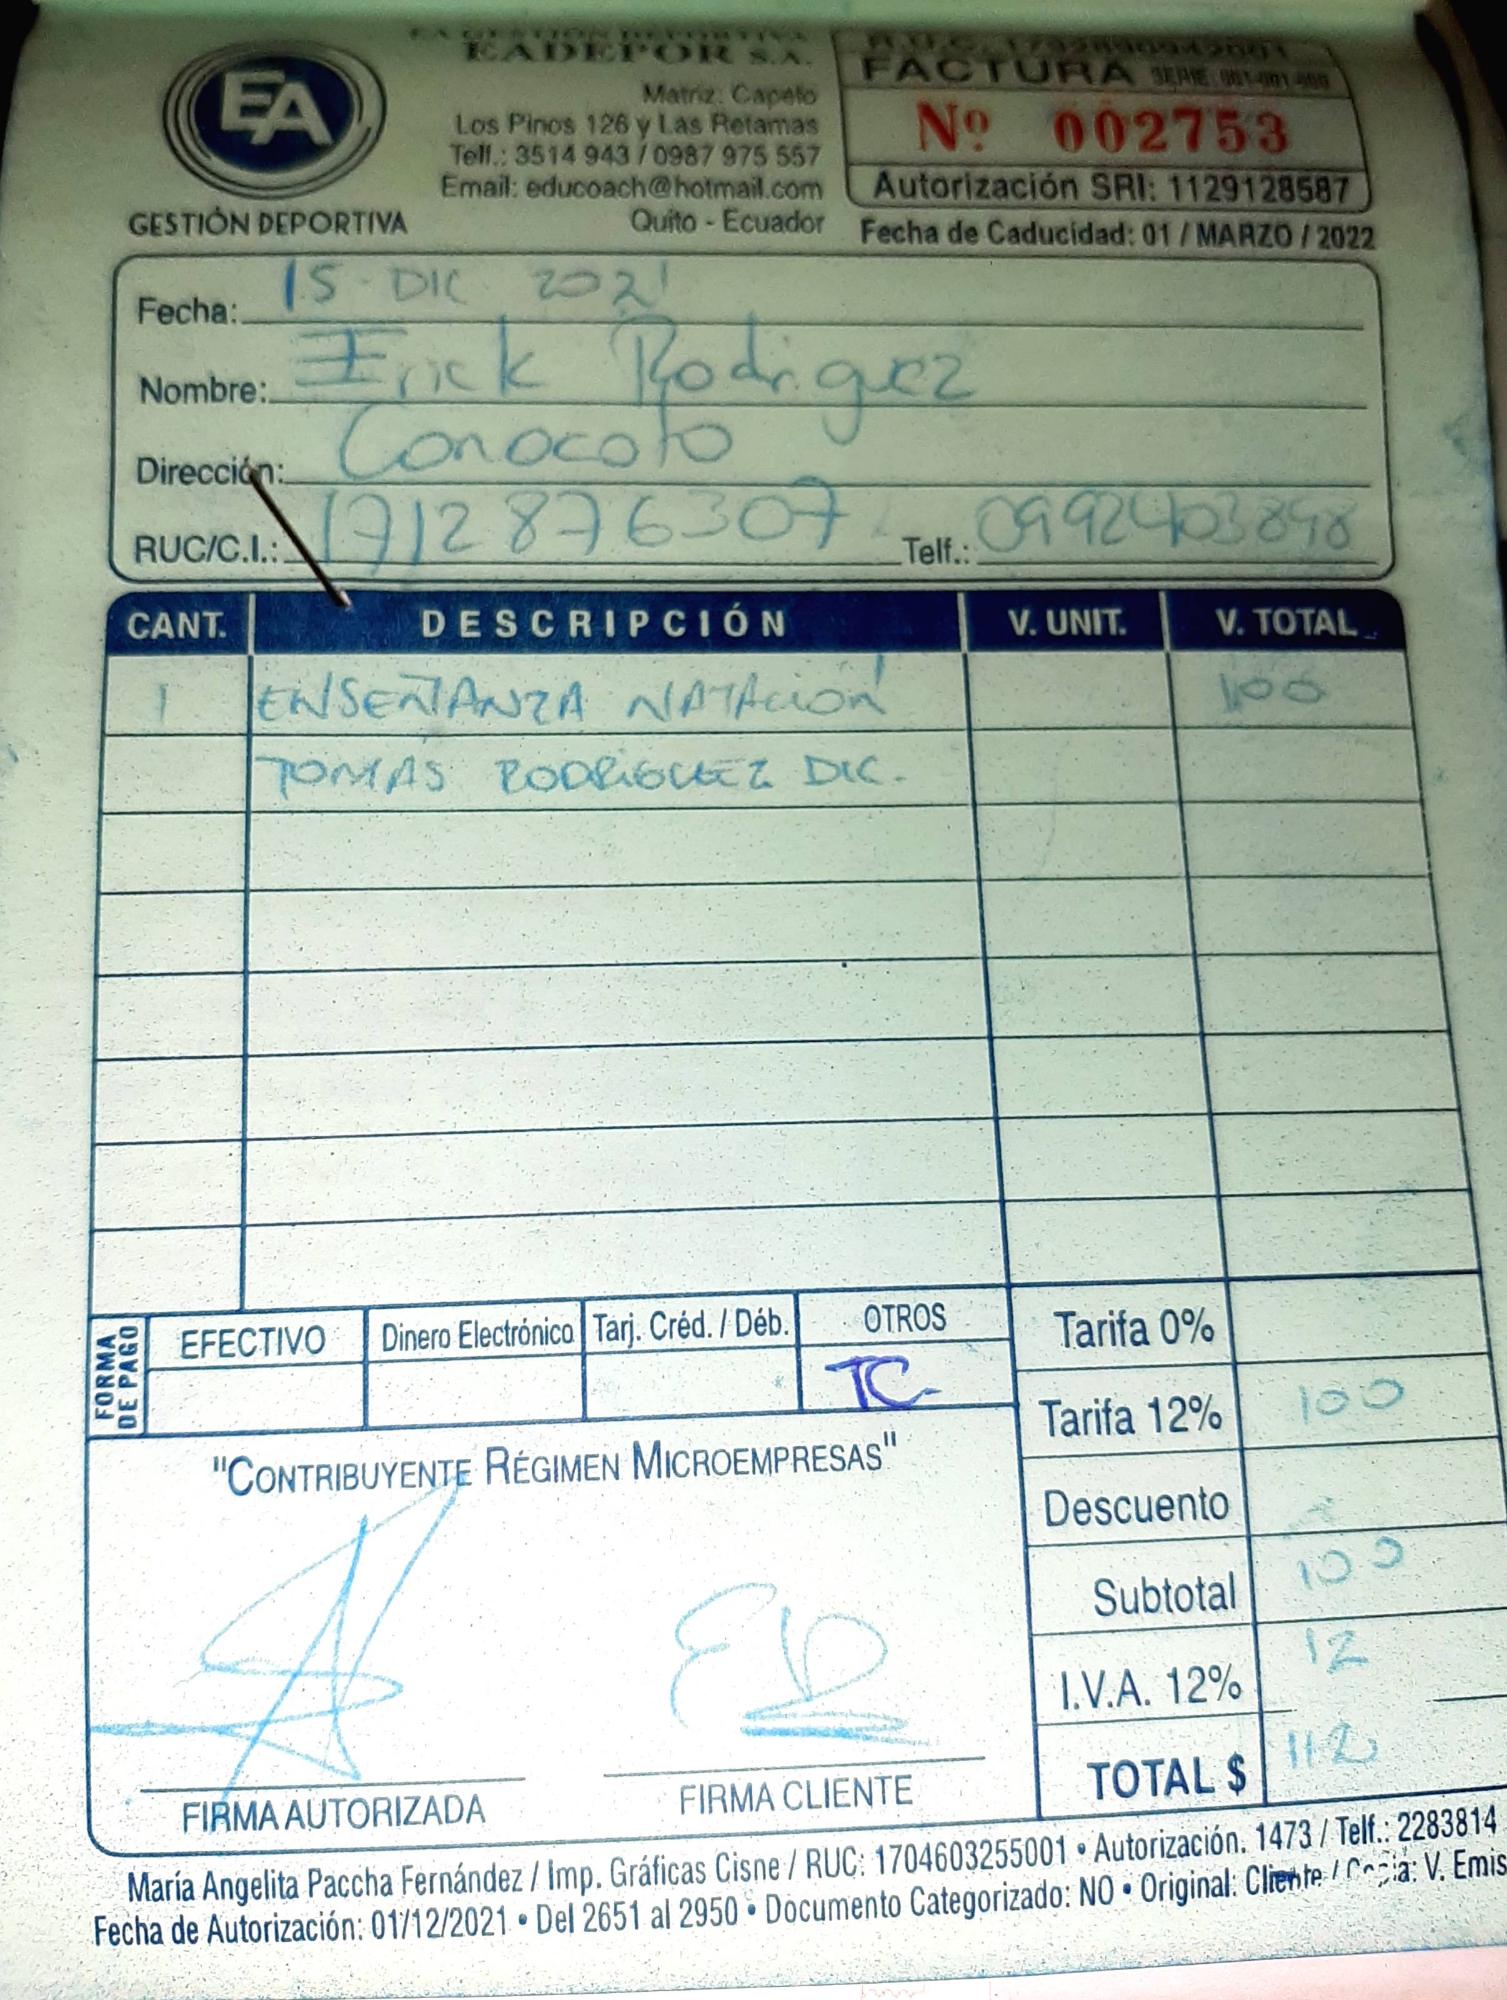 EA GESTIÓN DEPORTIVA
EADEPOR S.A.
EA
GESTIÓN DEPORTIVA
Matriz: Capelo
Los Pinos 126 y Las Retamas
Telf.: 3514 943 / 0987 975 557
Email: educoach@hotmail.com
Quito - Ecuador
FACTURA SERIE: 001-001-000
Nº 002753
Autorización SRI: 1129128587
Fecha de Caducidad: 01 / MARZO / 2022
Fecha: 15 - DIC 2021
Nombre: Erick Rodriguez
Dirección: Conocoto
RUC/C.I.: 1712876307 Telf.: 0992403898
CANT. DESCRIPCIÓN V. UNIT. V. TOTAL
1 ENSEÑANZA NATACIÓN 100
TOMÁS RODRIGUEZ DIC.
FORMA DE PAGO
EFECTIVO Dinero Electrónico Tarj. Créd. / Déb. OTROS
TC-
Tarifa 0%
Tarifa 12% 100
Descuento
Subtotal 100
I.V.A. 12% 12
TOTAL $ 112
"CONTRIBUYENTE RÉGIMEN MICROEMPRESAS"
FIRMA AUTORIZADA FIRMA CLIENTE
María Angelita Paccha Fernández / Imp. Gráficas Cisne / RUC: 1704603255001 • Autorización. 1473 / Telf.: 2283814
Fecha de Autorización: 01/12/2021 • Del 2651 al 2950 • Documento Categorizado: NO • Original: Cliente / Copia: V. Emis